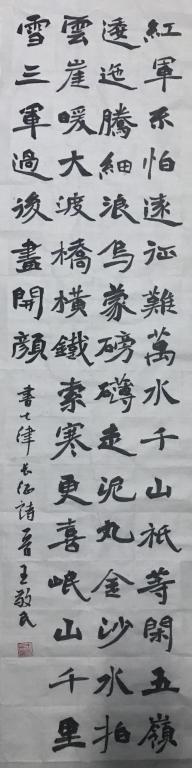 紅軍不怕遠征難萬水千山祇等閑五嶺
逶迤騰細浪烏蒙磅礴走泥丸金沙水拍
雲崖暖大渡橋橫鐵索寒更喜岷山千里
雪三軍過後盡開顏
書七律長征詩 晉 王敬民